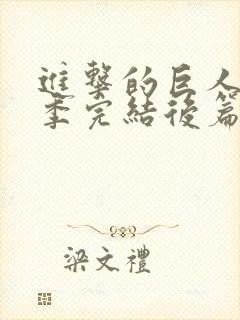 進擊的巨人
季完結後篇
梁文禮